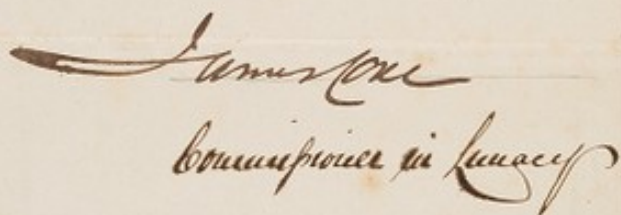 James Coxe
Commissioner in Lunacy